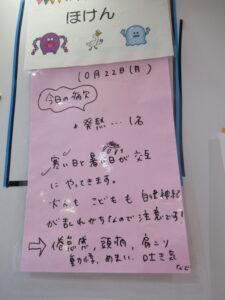 ほけん
10月22日(月)
今日の病欠
★発熱…1名
寒い日と暑い日が交互
にやってきます。
大人も こどもも 自律神経
が乱れがちなので注意です!
⇒ 倦怠感, 頭痛, 肩こり
動悸, めまい, 吐き気
など